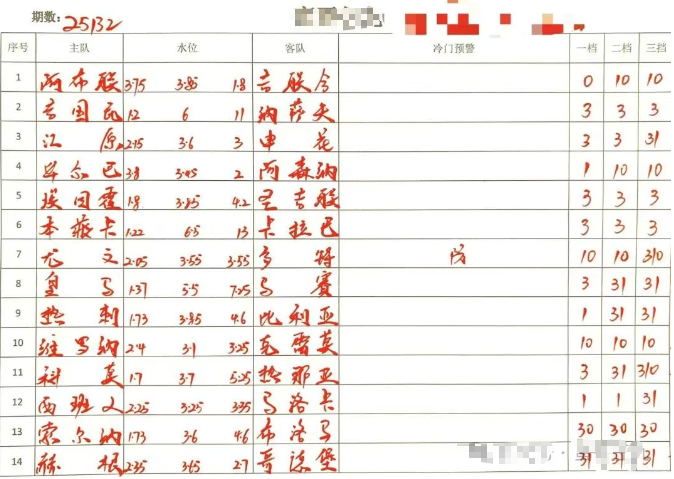 期数: 25132
序号 主队 水位 客队 冷门预警 一档 二档 三档
1 阿布联 3.75 3.85 1.8 吉联合 0 10 10
2 吉国民 1.2 6 11 纳萨夫 3 3 3
3 江原 2.15 3.6 3 申花 3 3 31
4 毕尔巴 3.8 3.45 2 阿森纳 1 10 10
5 埃因霍 1.8 3.85 4.2 圣吉联 3 3 3
6 本菲卡 1.22 6.5 13 卡拉巴 3 3 3
7 尤文 2.05 3.55 3.55 多特 防 10 10 310
8 皇马 1.37 5.5 7.25 马赛 3 31 31
9 热刺 1.73 3.85 4.6 比利亚 1 31 31
10 维罗纳 2.4 3.1 3.25 克雷莫 10 10 10
11 科莫 1.7 3.7 5.25 热那亚 3 31 310
12 西班人 2.25 3.25 3.35 马洛卡 1 1 31
13 索尔纳 1.73 3.6 4.6 布洛马 30 30 30
14 赫根 2.35 3.45 2.7 哥德堡 31 31 31